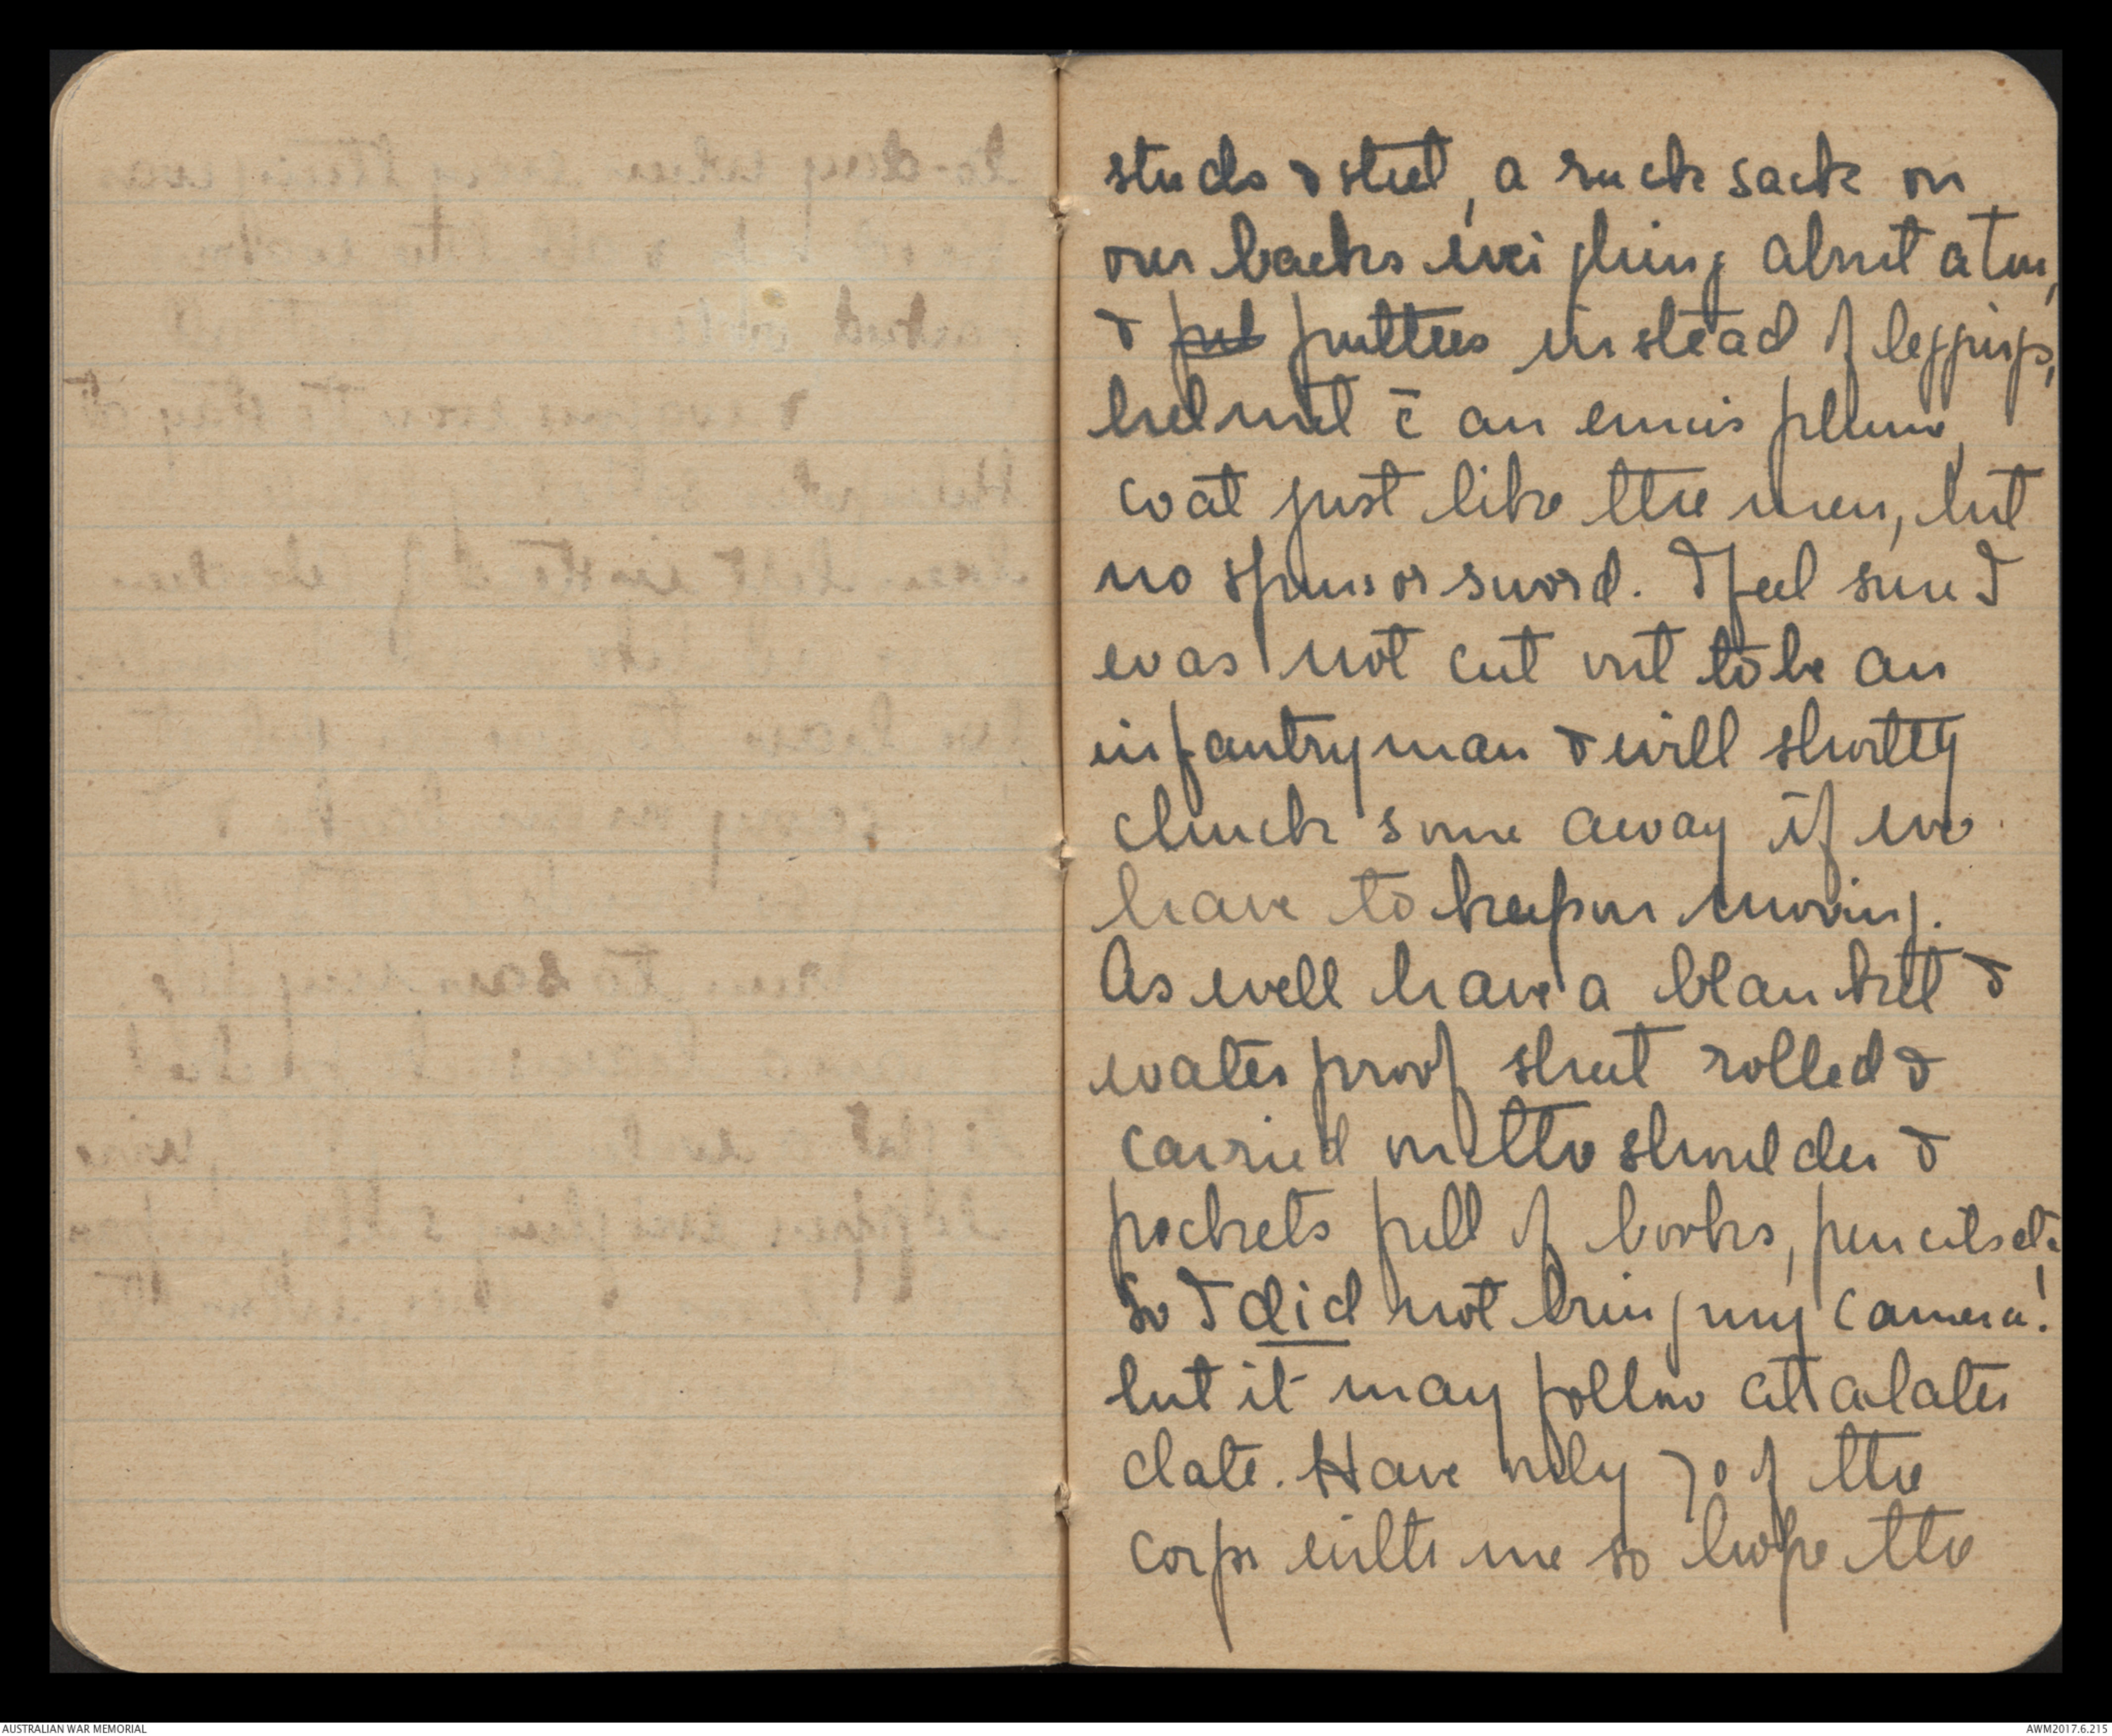 studs & steel, a ruck sack on
our backs weighing about a ton,
& put puttees instead of leggings,
helmet c̄ an emus plume,
coat just like the men, but
no spurs or sword. I feel sure I
was not cut out to be an
infantryman & will shortly
chuck some away if we
have to keep on moving.
As well have a blanket &
water proof sheet rolled &
carried on the shoulder &
pockets full of books, pencils etc
So I did not bring my camera!
but it may follow at a later
date. Have only 70 of the
corps with me so hope the
AUSTRALIAN WAR MEMORIAL
AWM2017.6.215